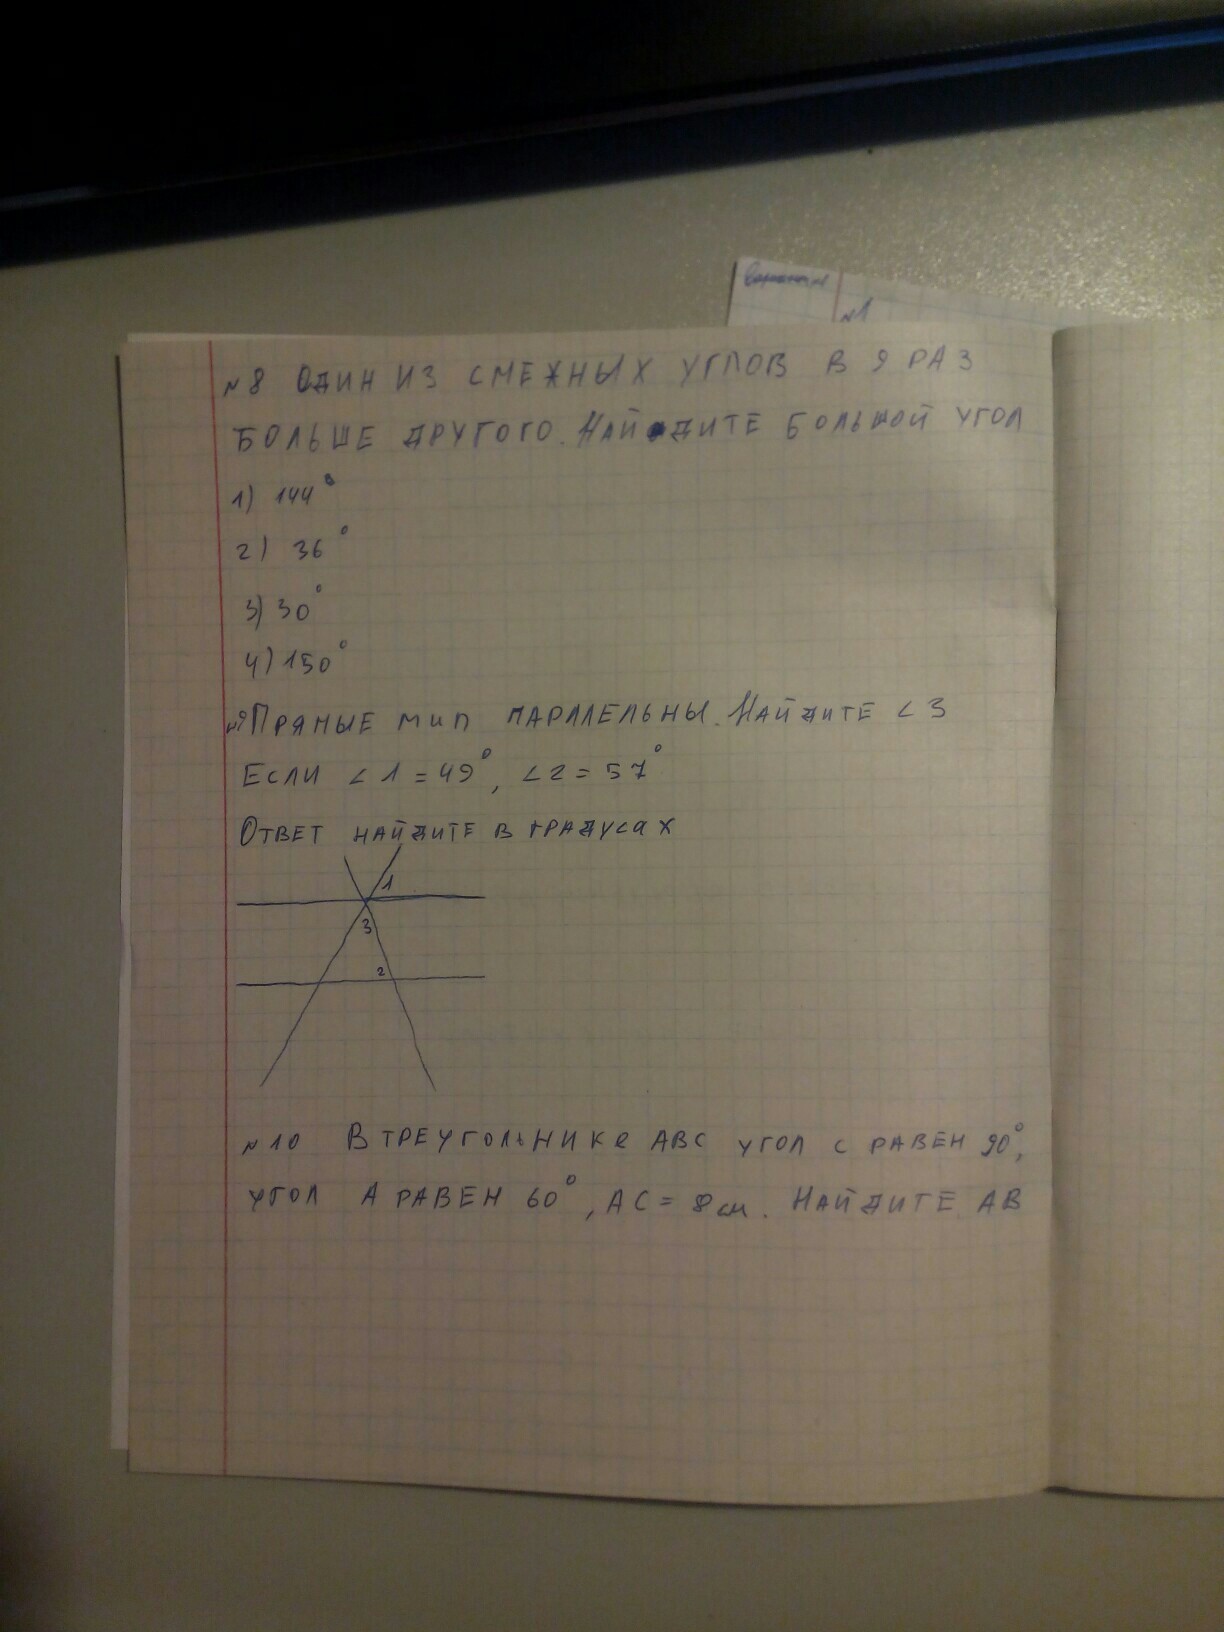 №1
№8 ОДИН ИЗ СМЕЖНЫХ УГЛОВ В 9 РАЗ
БОЛЬШЕ ДРУГОГО. НАЙДИТЕ БОЛЬШОЙ УГОЛ
1) 144°
2) 36°
3) 30°
4) 150°
№9 ПРЯМЫЕ m И n ПАРЛЛЕЛЬНЫ. НАЙДИТЕ <3
ЕСЛИ <1=49°, <2=57°
ОТВЕТ НАЙДИТЕ В ГРАДУСАХ
1
3
2
№10 В ТРЕУГОЛЬНИКЕ АВС УГОЛ С РАВЕН 90°,
УГОЛ А РАВЕН 60°, АС = 8см. НАЙДИТЕ АВ